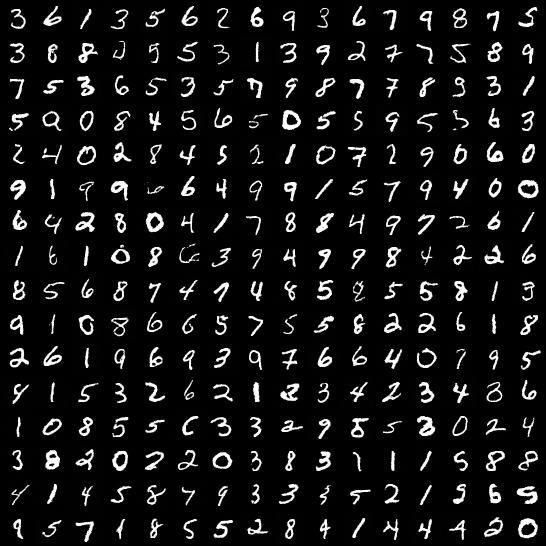 3 6 1 3 5 6 2 6 9 3 6 7 9 8 7 5
3 8 8 5 5 3 1 3 9 2 7 7 5 8 9
7 5 3 6 5 3 5 7 9 8 7 7 8 9 3 1
5 0 8 4 5 6 5 0 5 5 9 5 5 6 3
2 4 0 2 8 4 5 2 1 0 7 2 9 0 6 0
9 1 9 9 6 4 9 9 1 5 7 9 4 0 0
6 4 2 8 0 4 1 7 8 8 4 9 7 2 6 1
1 6 1 0 8 3 9 4 9 9 8 4 2 2 6
8 5 6 8 7 4 9 4 8 5 8 5 5 8 1 3
9 1 0 8 6 6 5 7 5 5 8 2 2 6 1 8
2 6 1 9 6 9 3 9 7 6 6 4 0 7 9 5
4 1 5 3 2 6 2 1 2 3 4 2 3 4 8 6
1 0 8 5 5 6 3 3 2 9 8 5 8 0 2 4
3 8 2 0 2 2 0 3 8 3 1 1 1 5 8 8
4 1 4 5 8 7 9 3 3 5 2 1 5 6 5
9 5 7 1 8 5 5 2 8 9 1 4 4 4 2 0